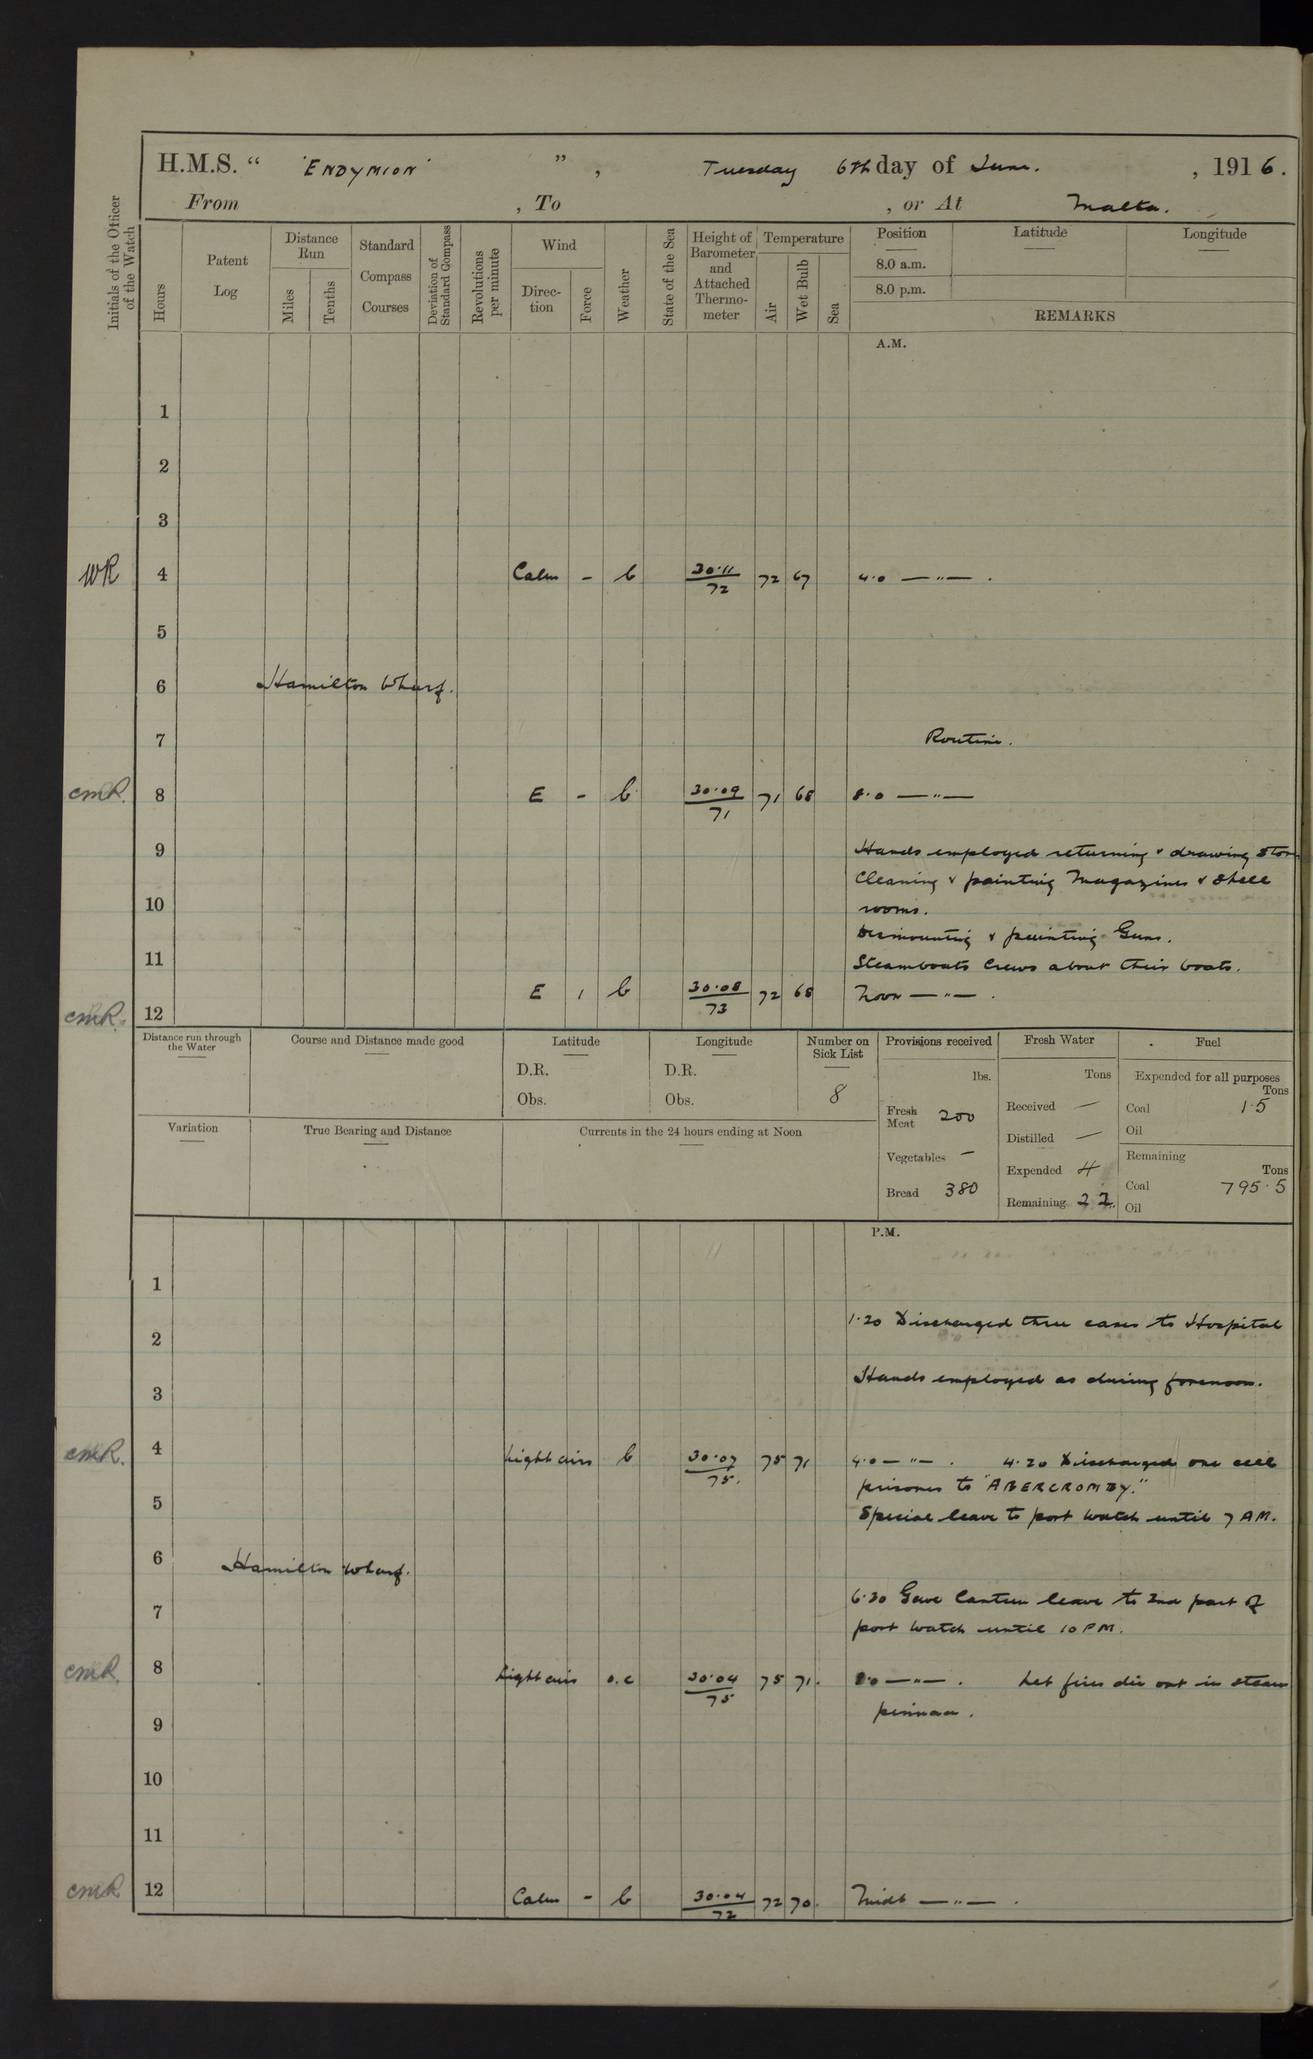 H.M.S. " 'ENDYMION' ", Tuesday 6th day of June. , 1916.
From , To , or At Malta.
Initials of the Officer of the Watch
Hours
Patent Log
Distance Run
Miles
Tenths
Standard Compass Courses
Deviation of Standard Compass
Revolutions per minute
Wind
Direction
Force
Weather
State of the Sea
Height of Barometer and Attached Thermometer
Temperature
Air
Wet Bulb
Sea
Position
8.0 a.m.
8.0 p.m.
Latitude
Longitude
REMARKS
A.M.
1
2
3
WR 4 Calm - b 30·11/72 72 67 4·0 —"— .
5
6 Hamilton Wharf.
7 Routine.
CMR. 8 E - b 30·09/71 71 68 8·0 —"—
9 Hands employed returning & drawing Stores
Cleaning & painting Magazines & Shell
10 rooms.
Dismounting & painting Guns.
11 Steamboats Crews about their boats.
CMR. 12 E 1 b 30·08/73 72 68 Noon —"— .
Distance run through the Water
Course and Distance made good
Latitude
D.R.
Obs.
Longitude
D.R.
Obs.
Number on Sick List
8
Provisions received
lbs.
Fresh Meat 200
Vegetables —
Bread 380
Fresh Water
Tons
Received —
Distilled —
Expended 4
Remaining 22.
Fuel
Expended for all purposes
Tons
Coal 1·5
Oil
Remaining
Tons
Coal 795·5
Oil
Variation
True Bearing and Distance
Currents in the 24 hours ending at Noon
P.M.
1
1·20 Discharged three cases to Hospital
2
Hands employed as during forenoon.
3
CMR. 4 Light airs b 30·07/75. 75 71 4·0 —"— . 4·20 Discharged one cell
prisoner to "ABERCROMBY."
5 Special leave to port watch until 7 AM.
6 Hamilton Wharf.
6·30 Gave Canteen leave to 2nd part of
7 port watch until 10 PM.
CMR. 8 Light airs o.c 30·04/75 75 71. 8·0 —"— . Let fires die out in steam
pinnace.
9
10
11
CMR 12 Calm - b 30·04/72 72 70. Midt —"— .